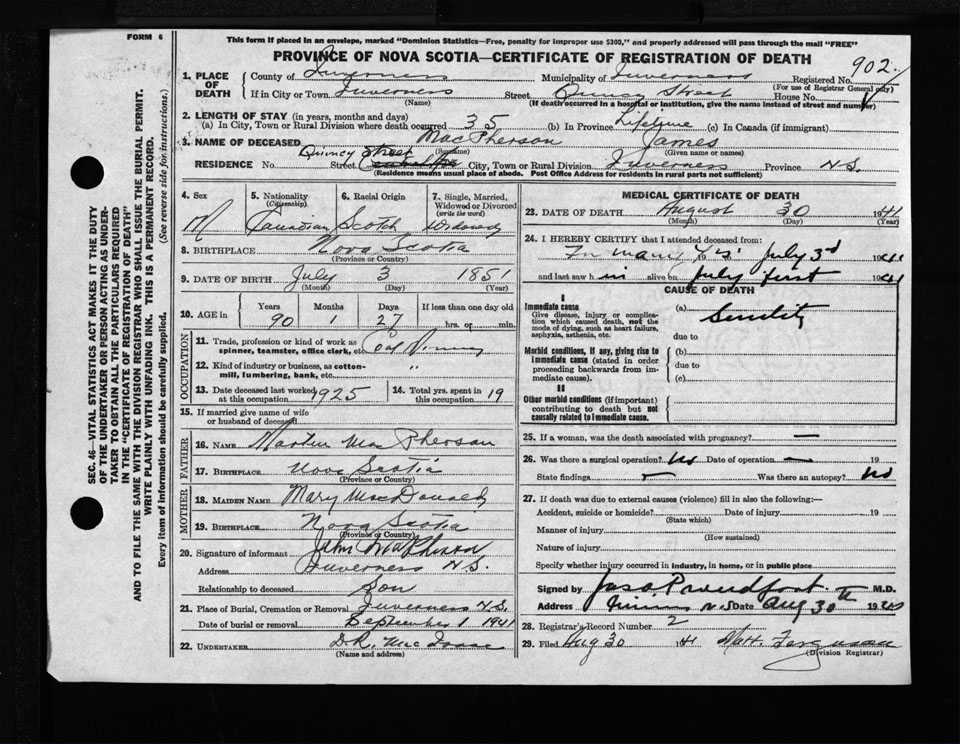 FORM 6
This form if placed in an envelope, marked "Dominion Statistics—Free, penalty for improper use $300," and properly addressed will pass through the mail "FREE"
PROVINCE OF NOVA SCOTIA—CERTIFICATE OF REGISTRATION OF DEATH
902
1. PLACE OF DEATH
County of Inverness Municipality of Inverness Registered No.
(For use of Registrar General only)
If in City or Town Inverness Street Quincy Street House No.
(Name) (If death occurred in a hospital or institution, give the name instead of street and number)
2. LENGTH OF STAY (in years, months and days)
(a) In City, Town or Rural Division where death occurred 35 (b) In Province Lifetime (c) In Canada (if immigrant)
3. NAME OF DECEASED MacPherson James
(Surname) (Given name or names)
RESIDENCE No. Quincy Street Street City, Town or Rural Division Inverness Province N.S.
(Residence means usual place of abode. Post Office Address for residents in rural parts not sufficient)
4. Sex
M
5. Nationality (Citizenship)
Canadian
6. Racial Origin
Scotch
7. Single, Married, Widowed or Divorced (write the word)
Widowed
8. BIRTHPLACE Nova Scotia
(Province or Country)
9. DATE OF BIRTH July 3 1851
(Month) (Day) (Year)
10. AGE IN
Years Months Days If less than one day old
90 1 27 hrs. or min.
OCCUPATION
11. Trade, profession or kind of work as spinner, teamster, office clerk, etc.
12. Kind of industry or business, as cotton-mill, lumbering, bank, etc. "
13. Date deceased last worked at this occupation 1925
14. Total yrs. spent in this occupation 19
15. If married give name of wife or husband of deceased
FATHER
16. Name Martin MacPherson
17. BIRTHPLACE Nova Scotia
(Province or Country)
MOTHER
18. MAIDEN NAME Mary MacDonald
19. BIRTHPLACE Nova Scotia
(Province or Country)
20. Signature of informant John MacPherson
Address Inverness N.S.
Relationship to deceased Son
21. Place of Burial, Cremation or Removal Inverness N.S.
Date of burial or removal September 1 1941
22. UNDERTAKER D.R. MacIsaac
(Name and address)
MEDICAL CERTIFICATE OF DEATH
23. DATE OF DEATH August 30 1941
(Month) (Day) (Year)
24. I HEREBY CERTIFY that I attended deceased from:
For many July 3rd 1941
and last saw h im alive on July first 1941
CAUSE OF DEATH
I
Immediate cause
Give disease, injury or complication which caused death, not the mode of dying, such as heart failure, asphyxia, asthenia, etc.
(a) Senility
due to
Morbid conditions, if any, giving rise to immediate cause (stated in order proceeding backwards from immediate cause).
(b)
due to
(c)
II
Other morbid conditions (if important) contributing to death but not causally related to immediate cause.
25. If a woman, was the death associated with pregnancy? —
26. Was there a surgical operation? No Date of operation — 19
State findings — Was there an autopsy? No
27. If death was due to external causes (violence) fill in also the following:—
Accident, suicide or homicide? Date of injury 19
(State which)
Manner of injury
(How sustained)
Nature of injury
Specify whether injury occurred in industry, in home, or in public place
Signed by M.D.
Address N.S. Date Aug 30th 19
28. Registrar's Record Number 2
29. Filed Aug 30 41
(Division Registrar)
SEC. 46—VITAL STATISTICS ACT MAKES IT THE DUTY
OF THE UNDERTAKER OR PERSON ACTING AS UNDER-
TAKER TO OBTAIN ALL THE PARTICULARS REQUIRED
IN THE "CERTIFICATE OF REGISTRATION OF DEATH"
AND TO FILE THE SAME WITH THE DIVISION REGISTRAR WHO SHALL ISSUE THE BURIAL PERMIT.
WRITE PLAINLY WITH UNFADING INK. THIS IS A PERMANENT RECORD.
Every item of information should be carefully supplied. (See reverse side for instructions.)